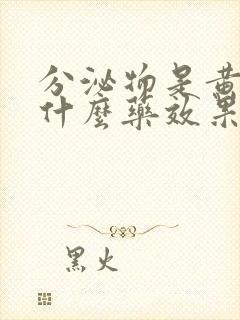 分泌物是黄
什麼藥效果
黑火